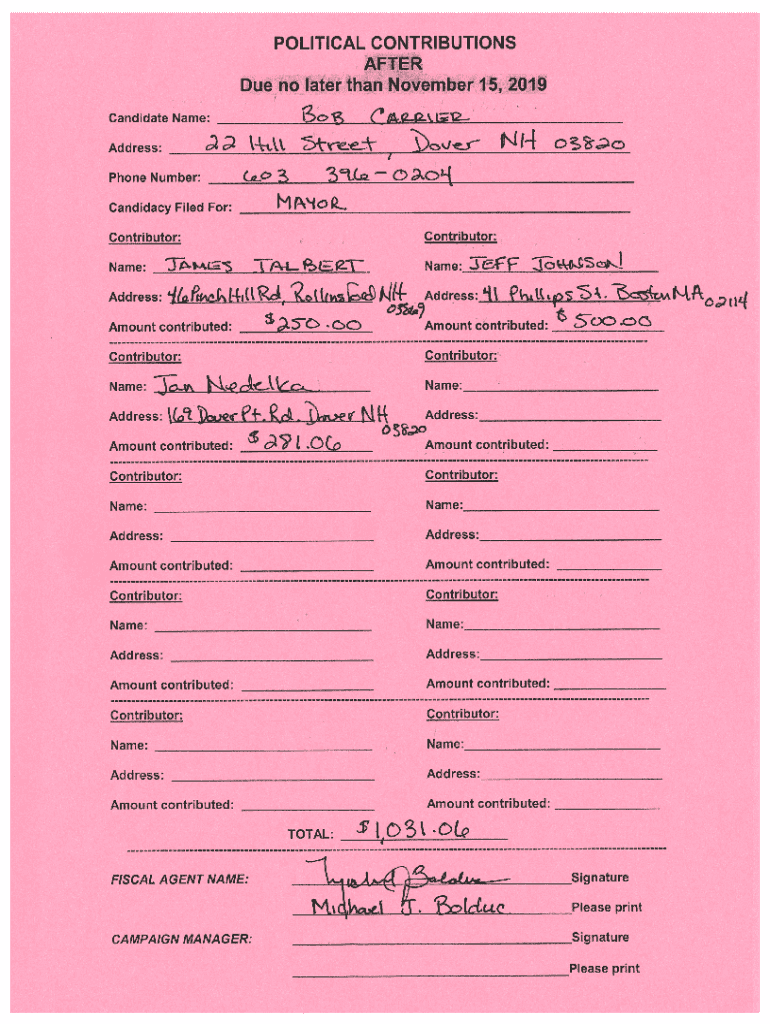 POLITICAL CONTRIBUTIONS
AFTER
Due no later than November 15, 2019
Candidate Name: BOB CARRIER
Address: 22 Hill Street, Dover NH 03820
Phone Number: 603 396-0204
Candidacy Filed For: MAYOR
Contributor: Contributor:
Name: JAMES TALBERT Name: JEFF JOHNSON
Address: 46 Pinch Hill Rd, Rollinsford NH 03869 Address: 41 Phillips St. Boston MA 02114
Amount contributed: $250.00 Amount contributed: $500.00
Contributor: Contributor:
Name: Jan Nedelka Name:
Address: 169 Dover Pt. Rd. Dover NH 03820 Address:
Amount contributed: $281.06 Amount contributed:
Contributor: Contributor:
Name: Name:
Address: Address:
Amount contributed: Amount contributed:
Contributor: Contributor:
Name: Name:
Address: Address:
Amount contributed: Amount contributed:
Contributor: Contributor:
Name: Name:
Address: Address:
Amount contributed: Amount contributed:
TOTAL: $1,031.06
FISCAL AGENT NAME: Signature
Michael J. Bolduc Please print
CAMPAIGN MANAGER: Signature
Please print